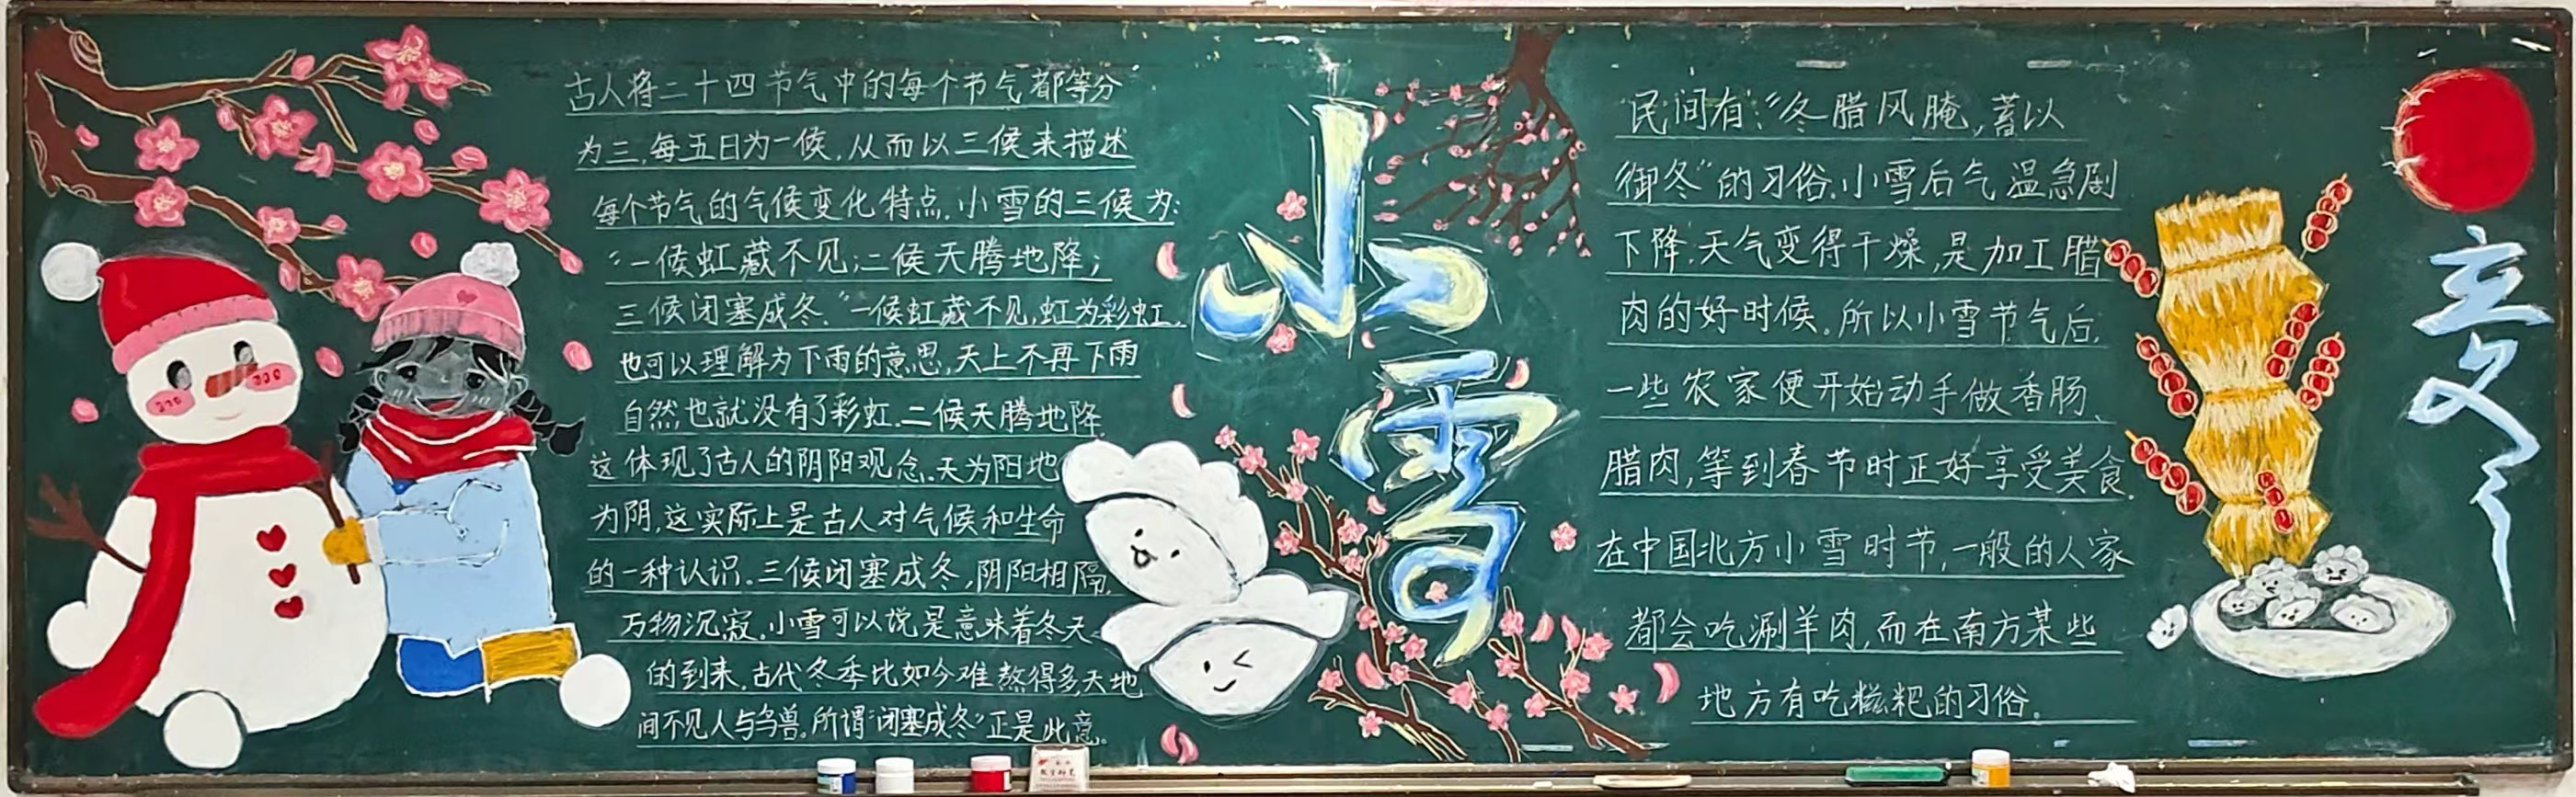 古人将二十四节气中的每个节气都等分
为三,每五日为一候,从而以三候来描述
每个节气的气候变化特点.小雪的三候为:
“一候虹藏不见;二候天腾地降;
三候闭塞成冬.”一候虹藏不见,虹为彩虹.
也可以理解为下雨的意思,天上不再下雨
自然也就没有了彩虹.二候天腾地降
这体现了古人的阴阳观念.天为阳地
为阴,这实际上是古人对气候和生命
的一种认识.三候闭塞成冬,阴阳相隔,
万物沉寂.小雪可以说是意味着冬天
的到来.古代冬季比如今难熬得多天地
间不见人与鸟兽。所谓“闭塞成冬”正是此意。
小雪
民间有:“冬腊风腌,蓄以
御冬”的习俗.小雪后气温急剧
下降,天气变得干燥,是加工腊
肉的好时候。所以小雪节气后,
一些农家便开始动手做香肠、
腊肉,等到春节时正好享受美食.
在中国北方小雪时节,一般的人家
都会吃涮羊肉,而在南方某些
地方有吃糍粑的习俗。
立冬